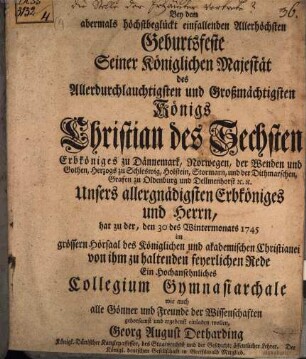 die Stelle der
36.
4
Bey dem
abermals höchstbeglückt einfallenden Allerhöchsten
Geburtsfeste
Seiner Königlichen Majestät
des
Allerdurchlauchtigsten und Großmächtigsten
Königs
Christian des Sechsten
Erbköniges zu Dännemark, Norwegen, der Wenden und
Gothen, Herzogs zu Schleswig, Holstein, Stormarn, und der Dithmarschen,
Grafen zu Oldenburg und Dellmenhorst ꝛc. ꝛc.
Unsers allergnädigsten Erbköniges
und Herrn,
hat zu der, den 30 des Wintermonats 1745
im
grössern Hörsaal des Königlichen und akademischen Christianei
von ihm zu haltenden feyerlichen Rede
Ein Hochansehnliches
Collegium Gymnasiarchale
wie auch
alle Gönner und Freunde der Wissenschaften
einladen
Georg August Detharding
Königl. Dänischer Kanzeleyassessor, des